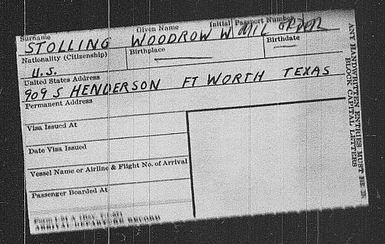 Surname Given Name Initial Passport Number
STOLLING WOODROW W MIL ORDER
Nationality (Citizenship) Birthplace Birthdate
U.S.
United States Address
909 S HENDERSON FT WORTH TEXAS
Permanent Address
Visa Issued At
Date Visa Issued
Vessel Name or Airline & Flight No. of Arrival
Passenger Boarded At
ARRIVAL-DEPARTURE RECORD
ANY HANDWRITTEN ENTRIES MUST BE IN
BLOCK CAPITAL LETTERS